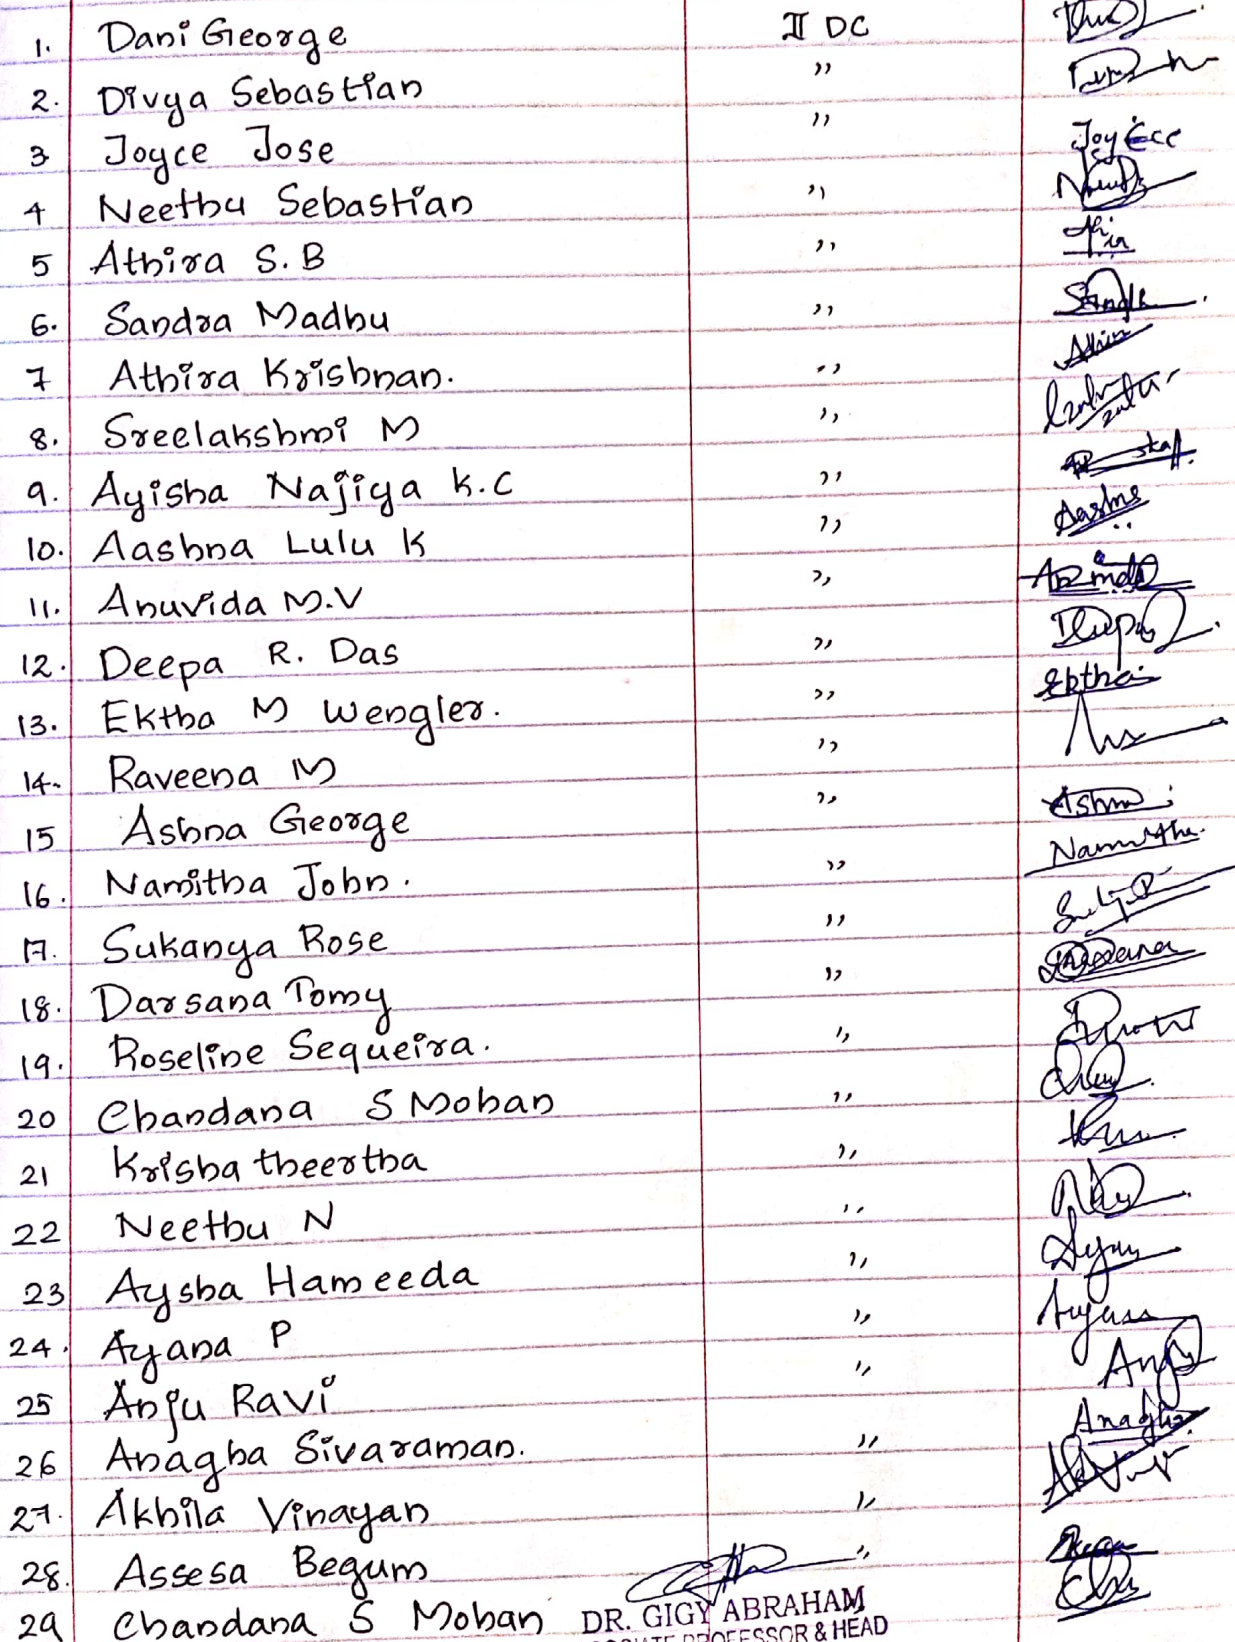 1. Dani George II DC
2. Divya Sebastian ,,
3 Joyce Jose ,,
4 Neethu Sebastian ,,
5 Athira S.B ,,
6. Sandra Madhu ,,
7 Athira Krishnan. ,,
8. Sreelakshmi M ,,
9. Ayisha Najiya K.C ,,
10. Aashna Lulu K ,,
11. Anuvida M.V ,,
12. Deepa R. Das ,,
13. Ektha M Wengler. ,, Ektha
14. Raveena M ,,
15 Ashna George ,,
16. Namitha John. ,, Namitha
17. Sukanya Rose ,,
18. Darsana Tomy ,,
19. Roseline Sequeira. ,,
20 Chandana S Mohan ,,
21 Krishatheertha ,,
22 Neethu N ,,
23 Aysha Hameeda ,,
24. Ayana P ,,
25 Anju Ravi ,,
26 Anagha Sivaraman. ,, Anagha
27. Akhila Vinayan ,,
28. Assesa Begum ,,
29 Chandana S Mohan DR. GIGY ABRAHAM
PROFESSOR & HEAD